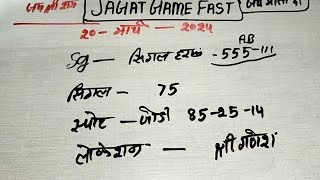 जय श्री राम JAGAT GAME FAST जय माता दी
२०- मार्च - २०२४
Sg - सिंगल हरूफ -555-111 AB
सिंगल - 75
सपोट - जोडी 85-25-14
लोकेशन - श्री गणेश